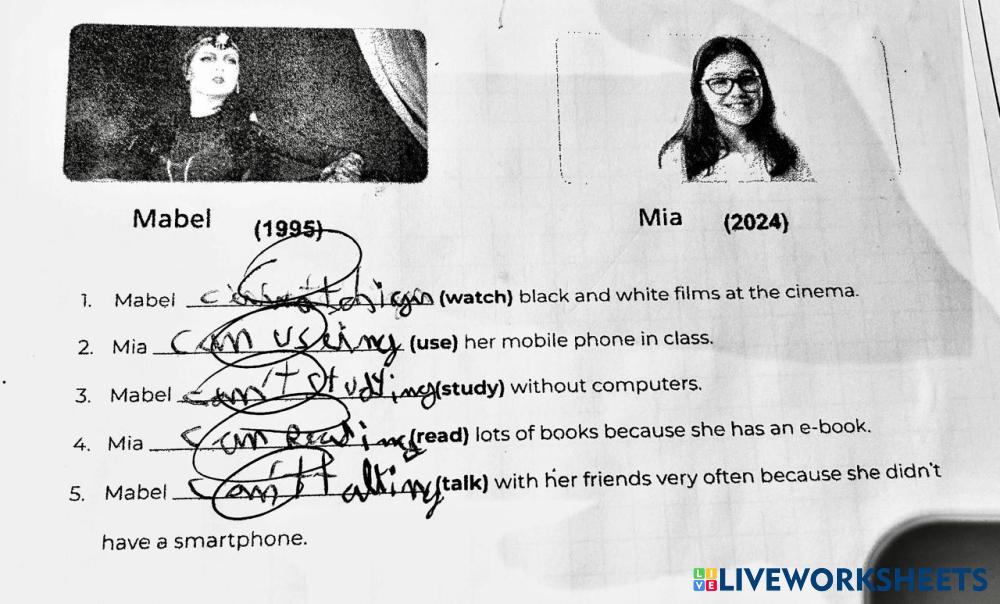 Mabel (1995) Mia (2024)
1. Mabel (watch) black and white films at the cinema.
2. Mia can useing (use) her mobile phone in class.
3. Mabel can't studying (study) without computers.
4. Mia can reading (read) lots of books because she has an e-book.
5. Mabel can't talking (talk) with her friends very often because she didn't
have a smartphone.
LIVEWORKSHEETS